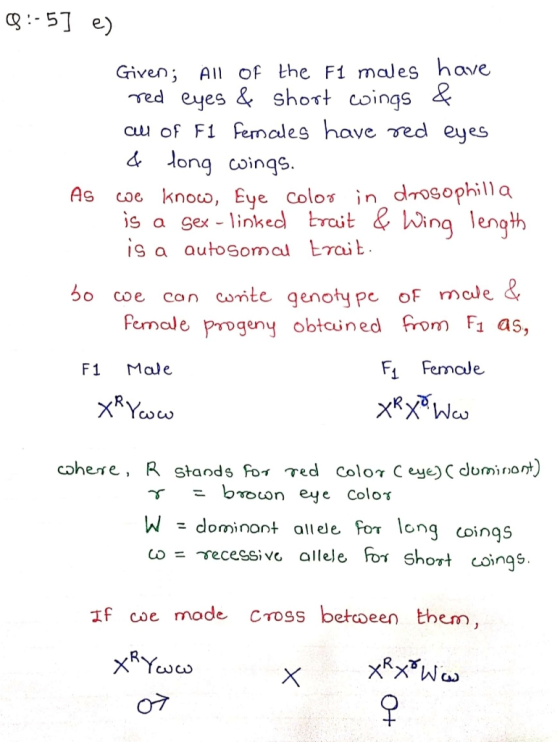 Q:- 5] e)
Given; All of the F1 males have
red eyes & short wings &
all of F1 females have red eyes
& long wings.
As we know, Eye color in drosophilla
is a sex-linked trait & Wing length
is a autosomal trait.
So we can write genotype of male &
female progeny obtained from F1 as,
F1 Male F1 Female
X^R Y w w X^R X^r W w
where, R stands for red color (eye) (dominant)
r = brown eye color
W = dominant allele for long wings
w = recessive allele for short wings.
If we made cross between them,
X^R Y w w X X^R X^r W w
♂ ♀